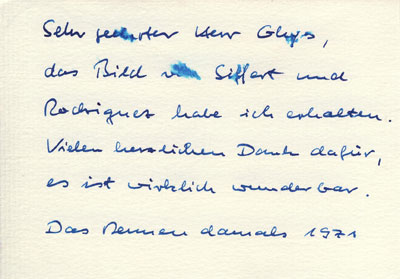 Sehr geehrter Herr Gheys,
das Bild von Siffert und
Rodriguez habe ich erhalten.
Vielen herzlichen Dank dafür,
es ist wirklich wunderbar.
Das Rennen damals 1971